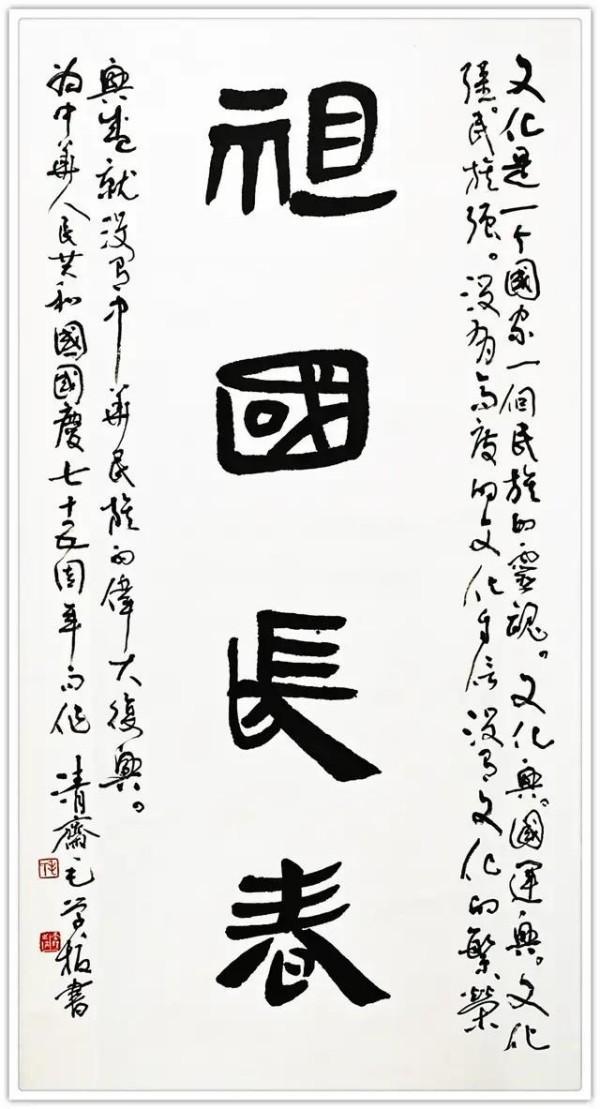 祖國長春
文化是一个國家一個民族的靈魂。文化興。國運興。文化
强。民族强。没有高度的文化自信没有文化的繁榮
興盛就没有中華民族的偉大復興。
为中華人民共和國國慶七十五周年而作 清齋毛学書